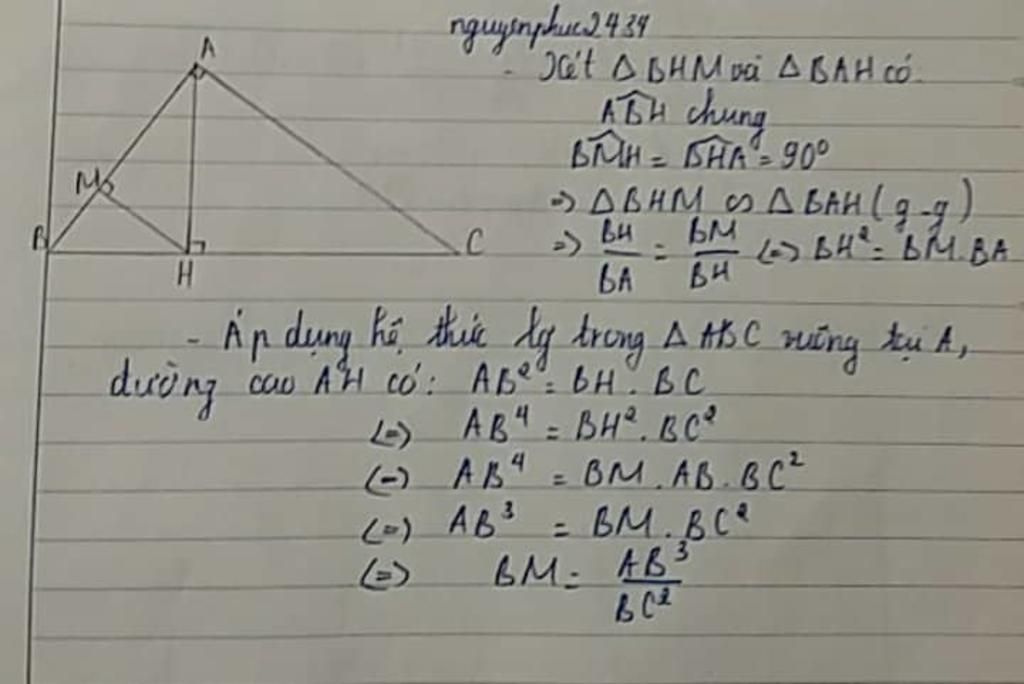 nguyenphuc2434
- Xét △BHM và △BAH có
ABH chung
BMH = BHA = 90°
=> △BHM ∽ △BAH (g-g)
=> BH/BA = BM/BH <=> BH² = BM.BA
A
M
B
H
C
- Áp dụng hệ thức lg trong △ABC vuông tại A,
đường cao AH có: AB² = BH.BC
<=> AB⁴ = BH².BC²
<=> AB⁴ = BM.AB.BC²
<=> AB³ = BM.BC²
<=> BM = AB³/BC²